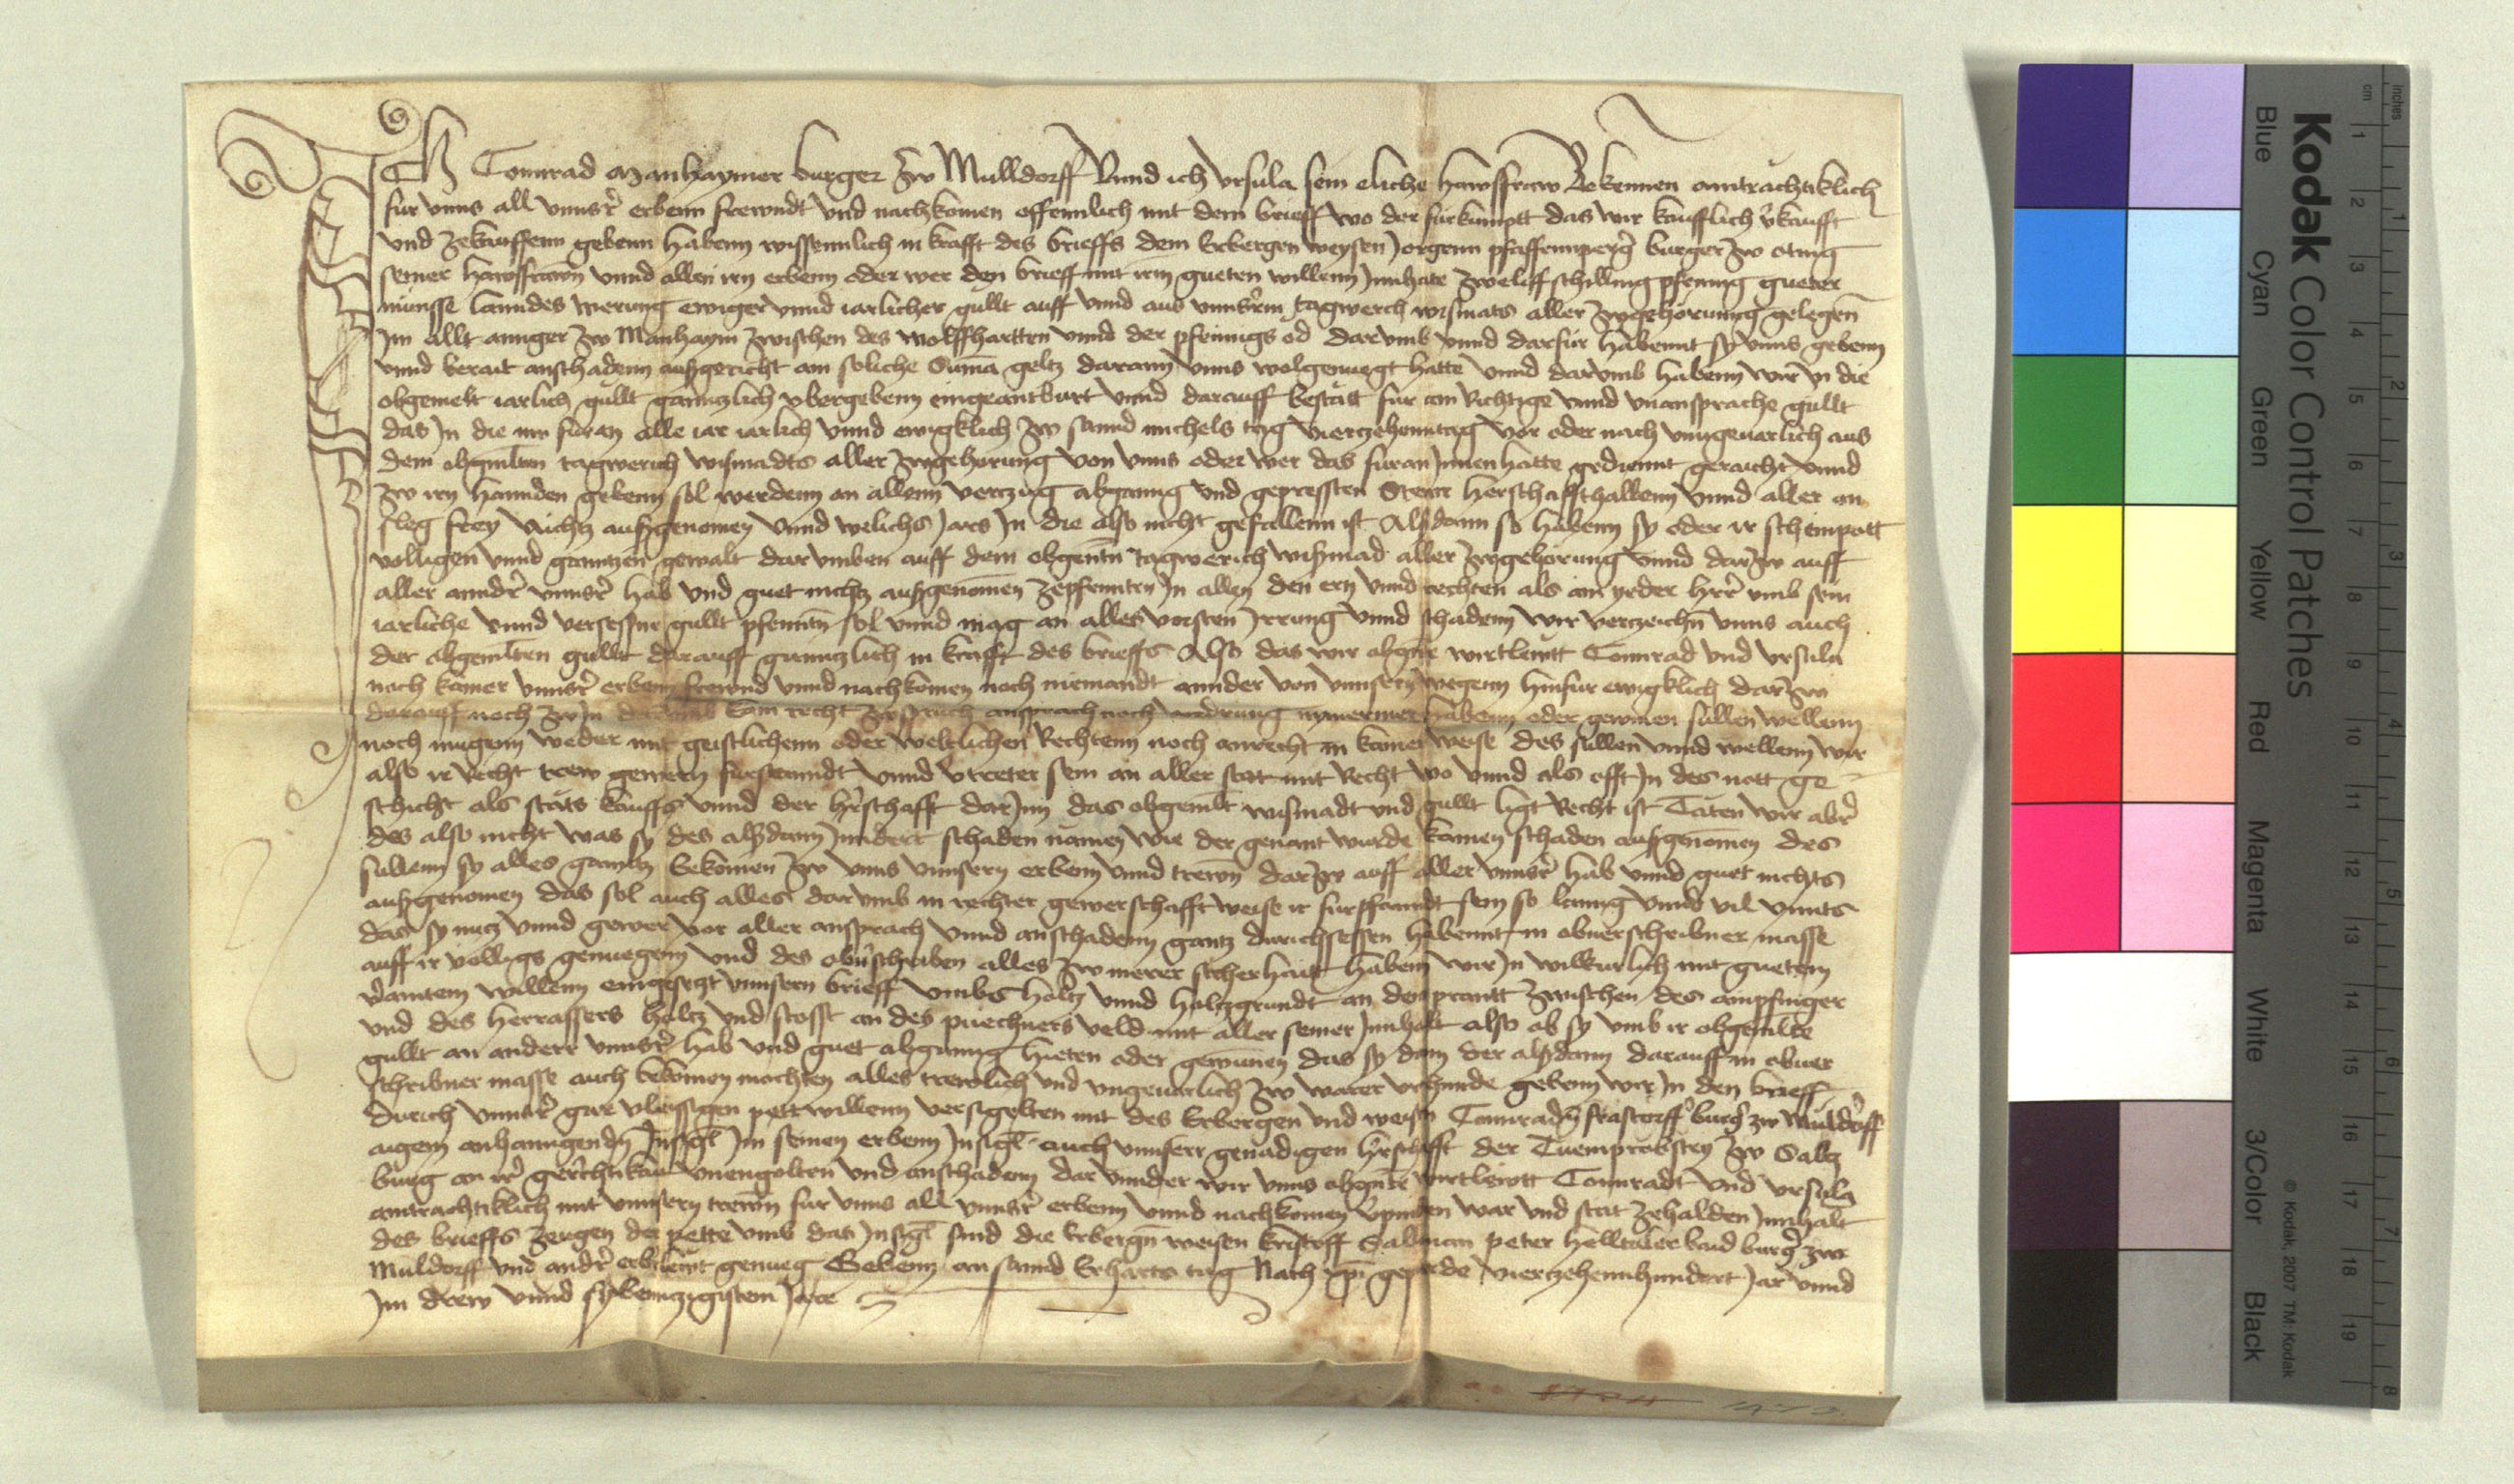 Ich Conrad Manhaymer burger zw Mulldorff Unnd ich Ursula sein eliche hawsfraw Bekennen aintrachtiklich
fur unns all unnsr̄ erbenn frewndt und nachkomen offennlich mit dem brieff wo der furkumptt das wir kaufflich v̄kaufft
und zekauffenn gebenn habenn wissennlich in krafft des brieffs dem Erbergen weysen Jorgenn pfaffennperḡ burger zw oting
seiner hawsfrawn̄ unnd allen irn erbenn oder wer den brieff mit irm gueten willenn Innhate zweliff schilling pfening gueter
münsse lanndes werung ewiger unnd iarlicher gullt auff unnd aus unnsr̄m tagwerch wismats aller zwgehörunng gelegen̄
Im allt anniger zw Manhaym zwischen des Wolffhartten unnd der pfennigs od darumb unnd darfür habennt sy unns gebenn
unnd berait anschadenn ausgericht ain soliche Suma geltz darann unns wolgenuegt hatte unnd darumb habenn wir in die
obgemelt iarlich gullt gänntzlich ubergebenn eingeantburt unnd darauff bestätt für ain Richtige unnd unansprache gullt
das In die nw füran alle iar iarlich unnd ewigklich zw sannd michels tag viertzehenntag vor oder nach unngeuarlich aus
dem obgmltn tagwerich wismadts aller zwgehorung von unns oder wer das furan Innen hatte gediennt geraicht unnd
zw irn hannden gebenn sol werdenn an allenn vertzug abganng und gepressten Stewr herschafft hallenn unnd aller an
sleg frey Nichtz ausgenomen Unnd welichs Jars In die also nicht gefallenn ist Alsdann so habenn sy oder ir scheinpott
volligen unnd ganntzen gewalt dar umben auff dem obgentn̄ tagwerich wismad aller zwgehorung unnd darzw auff
aller anndr̄ unnsr̄ hab und guet nichtz ausgenomen zepfenntn In allen den ern unnd rechten als ain yeder herr̄ umb sein
iarliche unnd versessne gullt pfennten sol unnd mag an alles vorsten Irrung unnd schadenn wir vertzeichn̄ unns auch
der obgemlten gullt darauff ganntzlich in krafft des brieffs Also das wir obgn̄te wirtlewtt Connrad und Ursula
noch kainer unnsr̄ erbenn frewnd unnd nachkomen noch niemandt annder von unnsern wegenn hinfur ewigklich darzw
darauff noch zw In darumb kain recht zwspruch ansprach noch vordrung nymermer habenn oder gewinen sullen wellenn
noch mügenn weder mit geistlichenn oder weltlichen Rechtenn noch anrecht in kainer weise Des sullen unnd wellenn wir
also ir Recht trew gewern fürstanndt unnd v̄treter sein an aller stat mit Recht wo unnd als offt In des nott ge
schicht als stäts kauffs unnd der hr̄schafft dar Inn das obgemlt wismadt und gullt ligt Recht ist Taten wir abr̄
des also nicht was sy des alsdann Inndert schaden namen wie der genant wurde kainen schaden ausgenomen des
sullenn sy alles ganntz bekomen zw unns unnsern erbenn unnd trewn̄ darzw auff aller unnsr̄ hab unnd guet nichts
ausgenomen das sol auch alles darumb in rechter gewerschafft weise ir fürpfanndt sein so lanng unnd vil unnts
das sy nutz unnd gewer vor aller ansprach unnd anschadenn gantz durichsessen habennt in obuerschribner masse
auff ir völligs genuegenn und des obūschriben alles zw merer sicherhait habenn wir In wilkurlich mit guetem
v̄aintem willenn eingesetzt unnsern brieff umbs holtz unnd holtzgrundt an dem prantt zwischen des ampfinger
und des herrassers holtz und stosst an des puechners veld mit aller seiner Innhalt also ob sy umb ir obgemlte
gullt an anderr unnsr̄ hab und guet abganng hieten oder gewunen das sy dann der alsdann darauff in obuer
schribner masse auch bekomen mochten alles trewlich und ungeuarlich zw warer urkunde gebenn wir In den brieff
durich unnsr̄ gar vleissigen pett willenn versigelten mit des Erbergen und weisn Connraden frastorffr̄ burḡ zw Muldorff
aigem anhanngendn̄ Insigl Im seinen erbenn Insigl auch unnserr genadigen hr̄schafft der Tuemprobstey zw Saltz
burg an ir gerechtikait unengolten und anschadenn dar unnder wir unns obgnte wirtlewtt Connradt und Ursula
aintrachtiklich mit unnsern trewn̄ für unns all unnsr̄ erbenn unnd nachkomen v̄pinden war und stat zehalden Innhalt
des brieffs zeugen der pette umb das Insigl sind die Erbergn̄ weisen kristoff Sallman peter helltaler baid burḡ zw
Muldorff und andr̄ erbr̄ lewt genueg Gebenn an sannd Erharts tag Nach xp̄i gepurde viertzehennhundert Jar unnd
Im drew unnd sybenntzigistem Jare
Kodak Color Control Patches
Blue Cyan Green Yellow Red Magenta White 3/Color Black
© Kodak, 2007 TM: Kodak
inches 1 2 3 4 5 6 7 8
cm 1 2 3 4 5 6 7 8 9 10 11 12 13 14 15 16 17 18 19